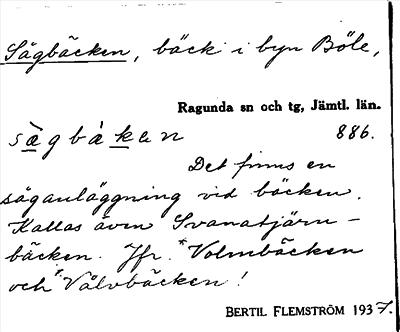 Sågbäcken, bäck i byn Böle,
Ragunda sn och tg, Jämtl. län.
sàgbàken 886.
Det finns en
såganläggning vid bäcken.
Kallas även Svanatjärn-
bäcken. Jfr. *Volmbäcken
och *Vålvbäcken!
BERTIL FLEMSTRÖM 1937.